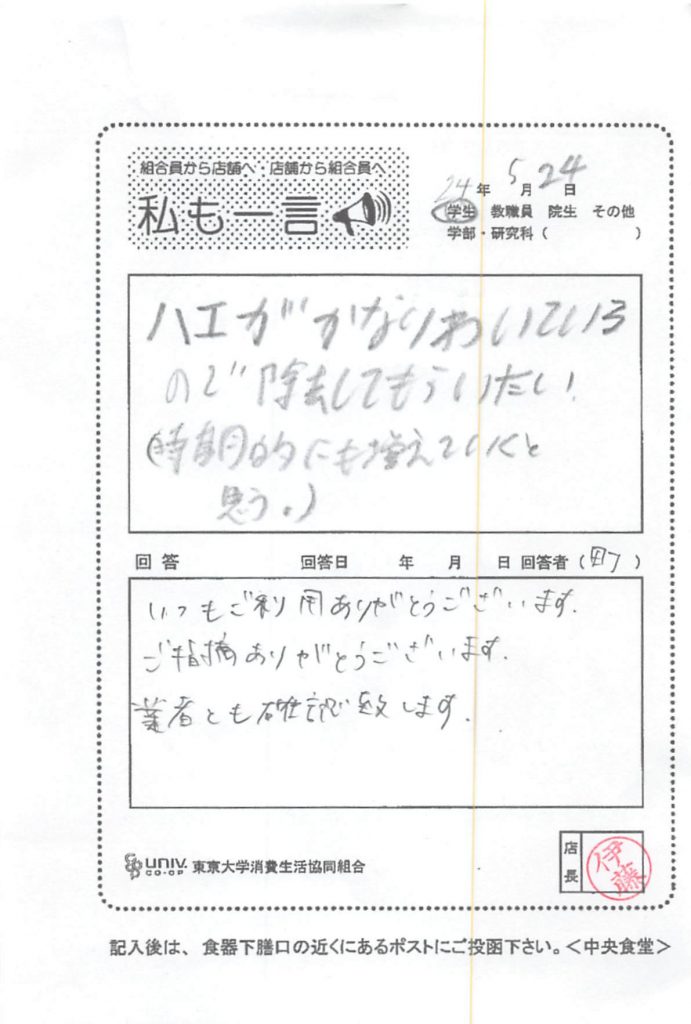 組合員から店舗へ・店舗から組合員へ
私も一言
24年 5月 24日
学生 教職員 院生 その他
学部・研究科（ ）
ハエがかなりわいている
ので除去してもらいたい!
(時期的にも増えていくと
思う。)
回答 回答日 年 月 日 回答者（町）
いつもご利用ありがとうございます.
ご指摘ありがとうございます.
業者とも確認致します.
UNIV. CO-OP 東京大学消費生活協同組合
店長 伊藤
記入後は、食器下膳口の近くにあるポストにご投函下さい。＜中央食堂＞